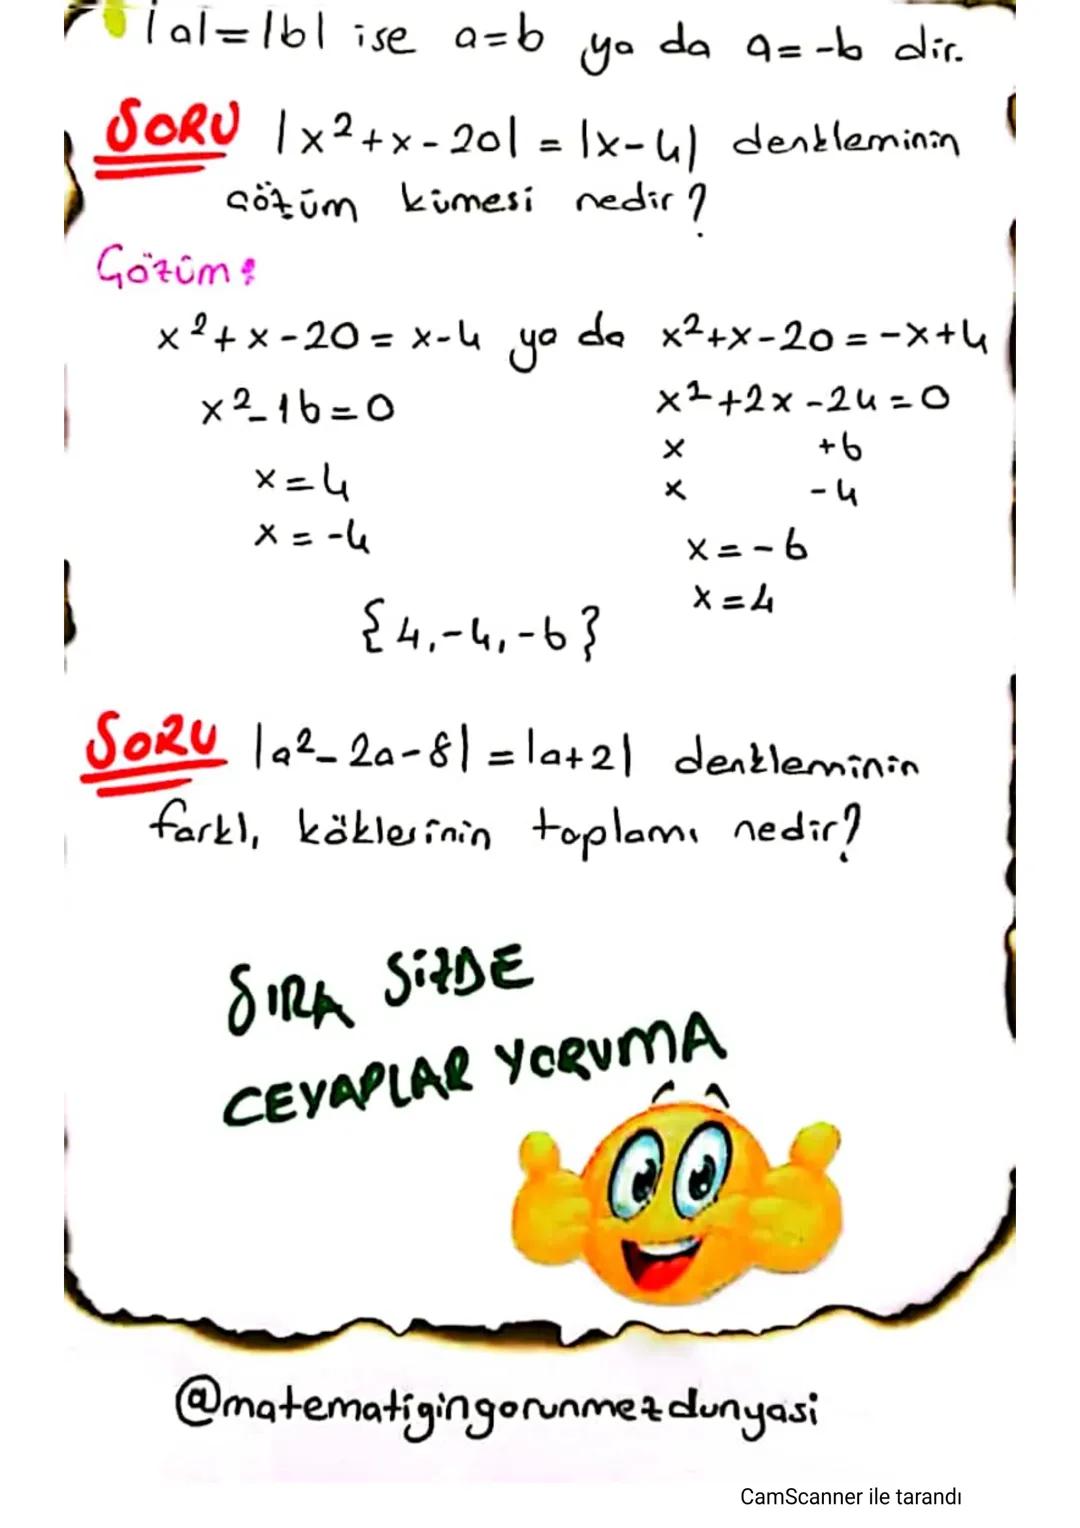 |a|=|b| ise a=b ya da a=-b dir.
SORU |x²+x-20| = |x-4| denkleminin
çözüm kümesi nedir?
Çözüm:
x²+x-20 = x-4 ya da x²+x-20 = -x+4
x²-16=0 x²+2x-24=0
x +6
x=4 x -4
x=-4 x=-6
x=4
{4,-4,-6}
SORU |a²-2a-8| = |a+2| denkleminin
farklı köklerinin toplamı nedir?
SIRA SİZDE
CEVAPLAR YORUMA
@matematigingorunmezdunyasi
CamScanner ile tarandı